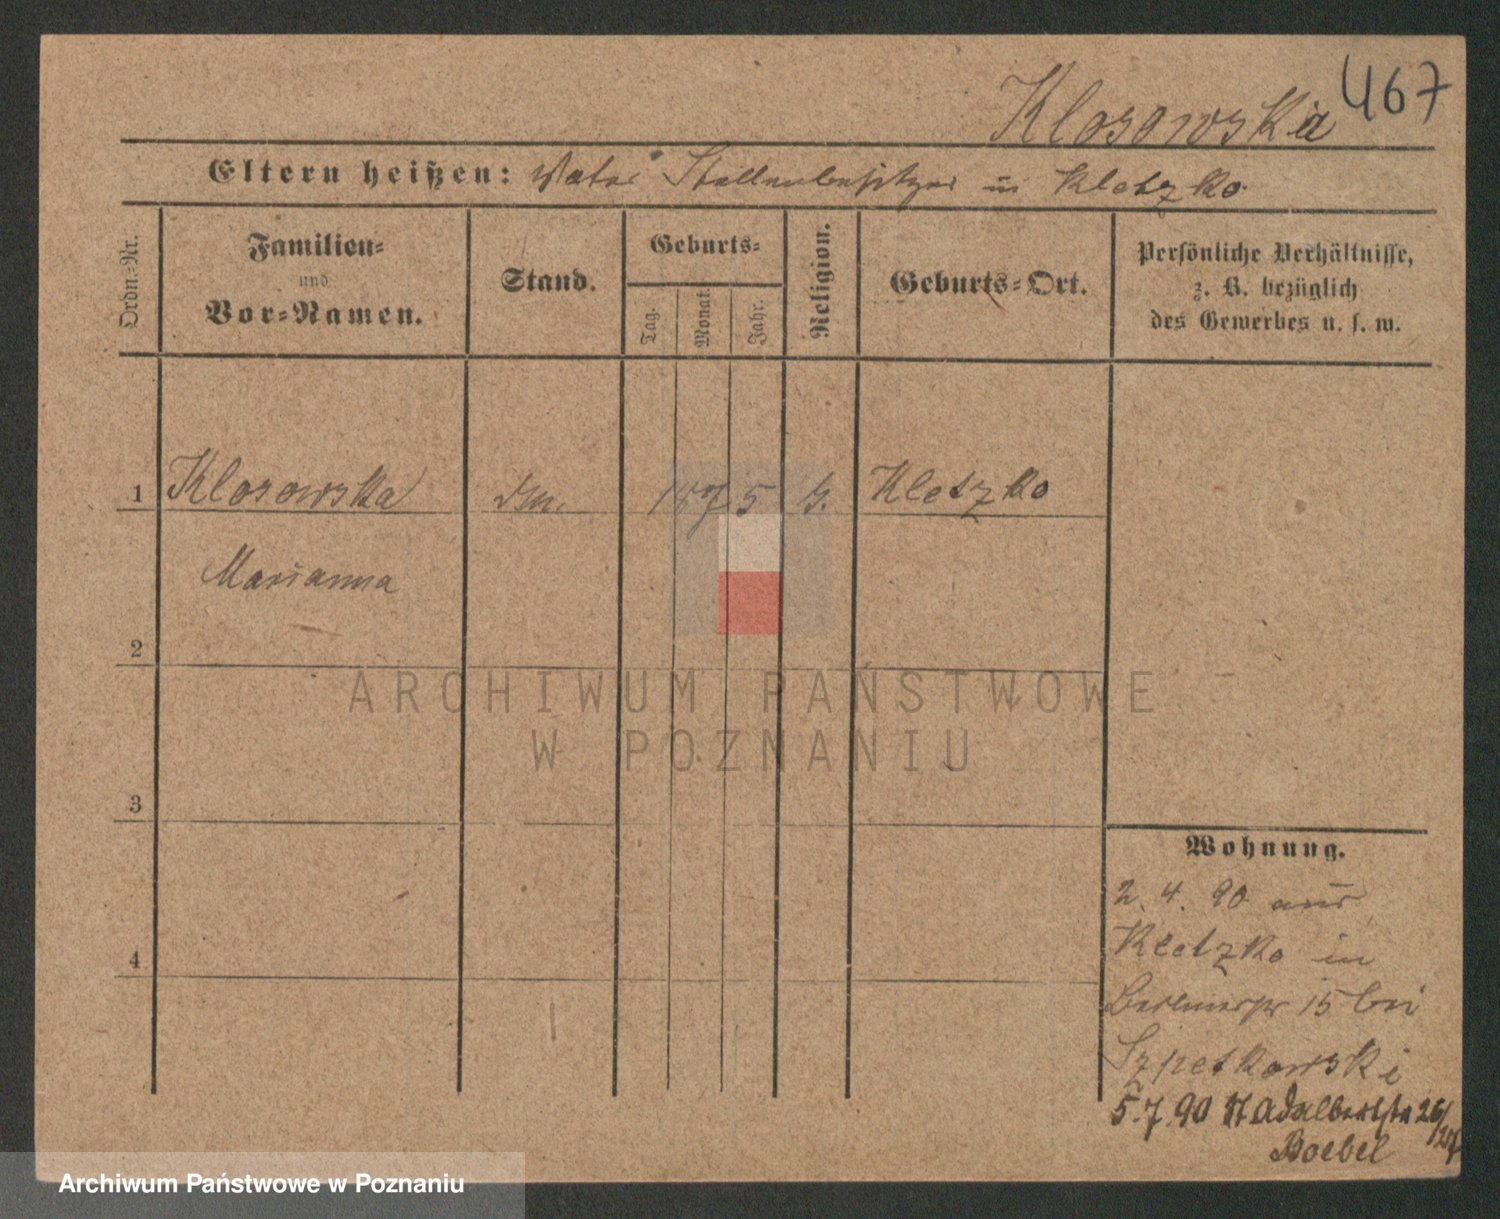 467
Klosowska
Eltern heißen: Vater Stellenbesitzer in Kletzko
Ordn.-Nr.
Familien-
und
Vor-Namen.
Stand.
Geburts-
Tag.
Monat.
Jahr.
Religion.
Geburts-Ort.
Persönliche Verhältnisse,
z. B. bezüglich
des Gewerbes u. s. w.
1 Klosowska 1875 Kletzko
Marianna
2
3
4
ARCHIWUM PAŃSTWOWE
W POZNANIU
Wohnung.
2. 4. 90 aus
Kletzko in
Berlinerstr 15 bei
Szpetkowski
5.7.90 St Adalbertstr 26/27
Boebel
Archiwum Państwowe w Poznaniu